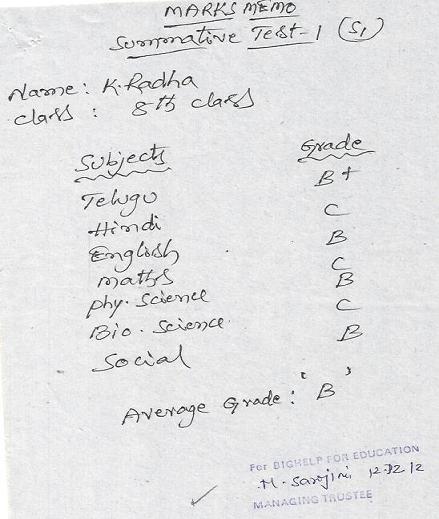 MARKS MEMO
Summative Test-1 (S1)
Name: K. Radha
Class: 8th class
Subjects Grade
Telugu B+
Hindi C
English B
Maths C
Phy. Science B
Bio. Science C
Social B
Average Grade: 'B'
For BIGHELP FOR EDUCATION
M. Sarojini
MANAGING TRUSTEE